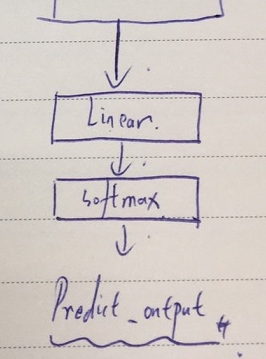 Linear.
Softmax
Predict_output